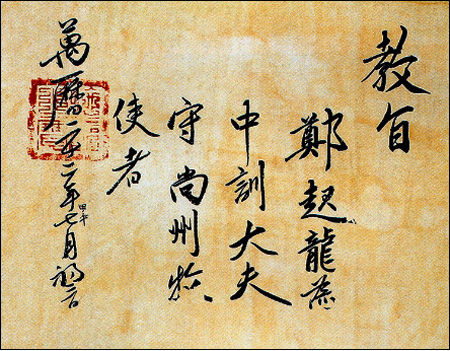 教旨
鄭起龍爲
中訓大夫
守尚州牧
使者
萬曆二年七月初日